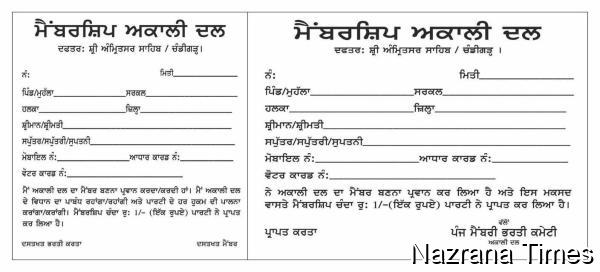 ਮੈਂਬਰਸ਼ਿਪ ਅਕਾਲੀ ਦਲ
ਦਫਤਰ: ਸ਼੍ਰੀ ਅੰਮ੍ਰਿਤਸਰ ਸਾਹਿਬ / ਚੰਡੀਗੜ੍ਹ।
ਨੰ: ਮਿਤੀ
ਪਿੰਡ/ਮੁਹੱਲਾ ਸਰਕਲ
ਹਲਕਾ ਜ਼ਿਲ੍ਹਾ
ਸ਼੍ਰੀਮਾਨ/ਸ਼੍ਰੀਮਤੀ
ਸਪੁੱਤਰ/ਸਪੁੱਤਰੀ/ਸੁਪਤਨੀ
ਮੋਬਾਇਲ ਨੰ: ਆਧਾਰ ਕਾਰਡ ਨੰ:
ਵੋਟਰ ਕਾਰਡ ਨੰ:
ਮੈਂ ਅਕਾਲੀ ਦਲ ਦਾ ਮੈਂਬਰ ਬਣਨਾ ਪ੍ਰਵਾਨ ਕਰਦਾ/ਕਰਦੀ ਹਾਂ। ਮੈਂ ਅਕਾਲੀ ਦਲ
ਦੇ ਵਿਧਾਨ ਦਾ ਪਾਬੰਧ ਰਹਾਂਗਾ/ਰਹਾਂਗੀ ਅਤੇ ਪਾਰਟੀ ਦੇ ਹਰ ਹੁਕਮ ਦੀ ਪਾਲਨਾ
ਕਰਾਂਗਾ/ਕਰਾਂਗੀ। ਮੈਂਬਰਸ਼ਿਪ ਚੰਦਾ ਰੁ: 1/– (ਇੱਕ ਰੁਪਏ) ਪਾਰਟੀ ਨੇ ਪ੍ਰਾਪਤ
ਕਰ ਲਿਆ ਹੈ।
ਦਸਤਖਤ ਭਰਤੀ ਕਰਤਾ ਦਸਤਖਤ ਮੈਂਬਰ
ਮੈਂਬਰਸ਼ਿਪ ਅਕਾਲੀ ਦਲ
ਦਫਤਰ: ਸ਼੍ਰੀ ਅੰਮ੍ਰਿਤਸਰ ਸਾਹਿਬ / ਚੰਡੀਗੜ੍ਹ ।
ਨੰ: ਮਿਤੀ
ਪਿੰਡ/ਮੁਹੱਲਾ ਸਰਕਲ
ਹਲਕਾ ਜ਼ਿਲ੍ਹਾ
ਸ਼੍ਰੀਮਾਨ/ਸ਼੍ਰੀਮਤੀ
ਸਪੁੱਤਰ/ਸਪੁੱਤਰੀ/ਸੁਪਤਨੀ
ਮੋਬਾਇਲ ਨੰ: ਆਧਾਰ ਕਾਰਡ ਨੰ:
ਵੋਟਰ ਕਾਰਡ ਨੰ:
ਨੇ ਅਕਾਲੀ ਦਲ ਦਾ ਮੈਂਬਰ ਬਣਨਾ ਪ੍ਰਵਾਨ ਕਰ ਲਿਆ ਹੈ ਅਤੇ ਇਸ ਮਕਸਦ
ਵਾਸਤੇ ਮੈਂਬਰਸ਼ਿਪ ਚੰਦਾ ਰੁ: 1/–(ਇੱਕ ਰੁਪਏ) ਪਾਰਟੀ ਨੇ ਪ੍ਰਾਪਤ ਕਰ ਲਿਆ ਹੈ।
ਵੱਲੋਂ
ਪ੍ਰਾਪਤ ਕਰਤਾ ਪੰਜ ਮੈਂਬਰੀ ਭਰਤੀ ਕਮੇਟੀ
ਅਕਾਲੀ ਦਲ
Nazrana Times